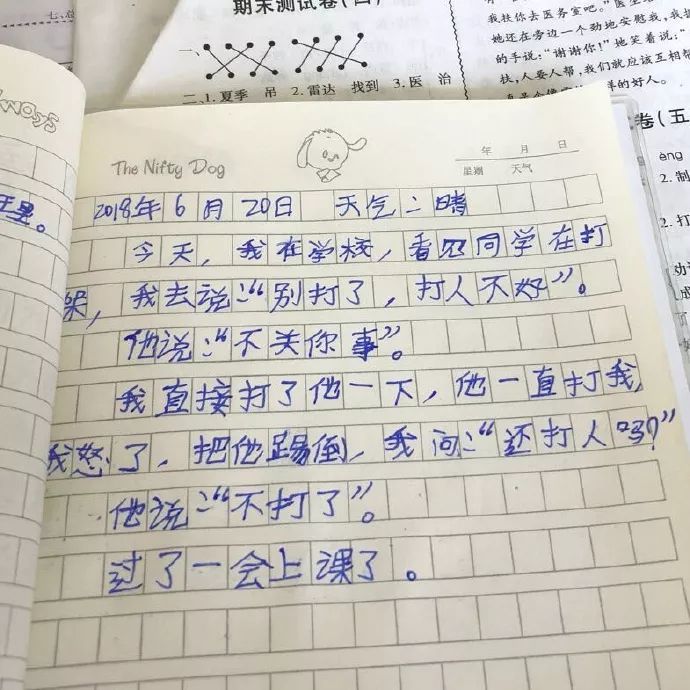 七、总
期末测试卷(四)
一、
二、1.夏季 吊 2.雷达 找到 3.医 治
我扶你去医务室吧。”医生
她还在旁边一个劲地安慰我,我
的手说:“谢谢你!”她笑着说:“
扶,人要人帮,我们就应该互相帮
样的好人。
卷(五
ang
2.制
2.打
The Nifty Dog
年 月 日
星期 天气
2018年6月20日 天气:晴
今天,我在学校,看见同学在打
架,我去说:“别打了,打人不好”。
他说:“不关你事”。
我直接打了他一下,他一直打我,
我怒了,把他踢倒,我问:“还打人吗?”
他说:“不打了”。
过了一会上课了。